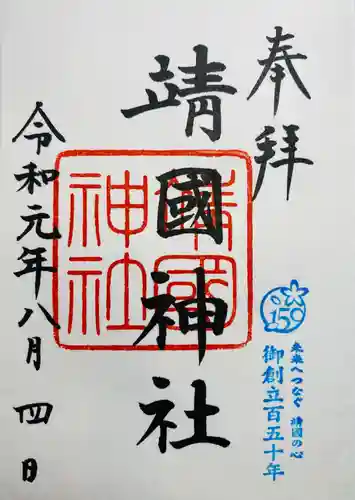 奉拝
靖國神社
靖國神社
令和元年八月四日
150
未来へつなぐ 靖國の心
御創立百五十年